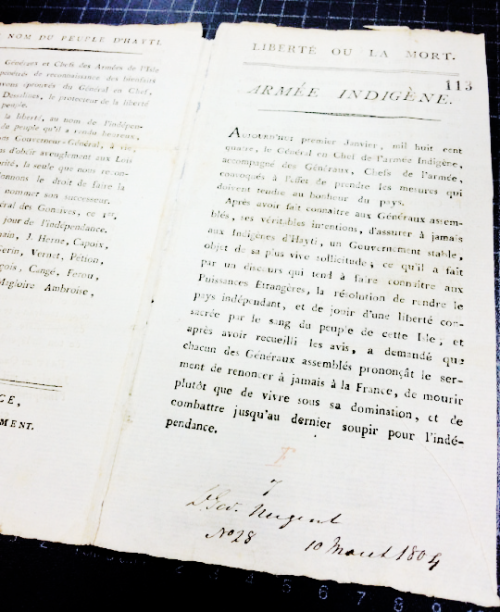 NOM DU PEUPLE D'HAYTI.
Généraux et Chefs des Armées de l'Isle
de reconnaissance des bienfaits
éprouvés du Général en Chef,
Dessalines, le protecteur de la liberté
peuple.
la liberté, au nom de l'indépen-
de peuple qu'il a rendu heureux,
Gouverneur-Général, à vie,
d'obéir aveuglement aux Lois
la seule que nous re-
donnons le droit de faire la
nommer son successeur.
des Gonaïves, ce 1er.
jour de l'indépendance.
J. Herne, Capois,
Gerin, Vernet, Pétion,
Cangé, Ferou,
Magloire Ambroise,
CE,
MENT.
LIBERTÉ OU LA MORT.
113
ARMÉE INDIGÈNE.
AUJOURD'HUI premier Janvier, mil huit cent
quatre, le Général en Chef de l'armée Indigène,
accompagné des Généraux, Chefs de l'armée,
convoqués à l'effet de prendre les mesures qui
doivent tendre au bonheur du pays.
Après avoir fait connaître aux Généraux assem-
blés, ses véritables intentions, d'assurer à jamais
aux Indigènes d'Hayti, un Gouvernement stable,
objet de sa plus vive sollicitude; ce qu'il a fait
par un discours qui tend à faire connaître aux
Puissances Etrangères, la résolution de rendre le
pays indépendant, et de jouir d'une liberté con-
sacrée par le sang du peuple de cette Isle; et
après avoir recueilli les avis, a demandé que
chacun des Généraux assemblés prononçât le ser-
ment de renoncer à jamais à la France, de mourir
plutôt que de vivre sous sa domination, et de
combattre jusqu'au dernier soupir pour l'indé-
pendance.
Nugent
No 28 10 March 1804
5 6 7 8 9